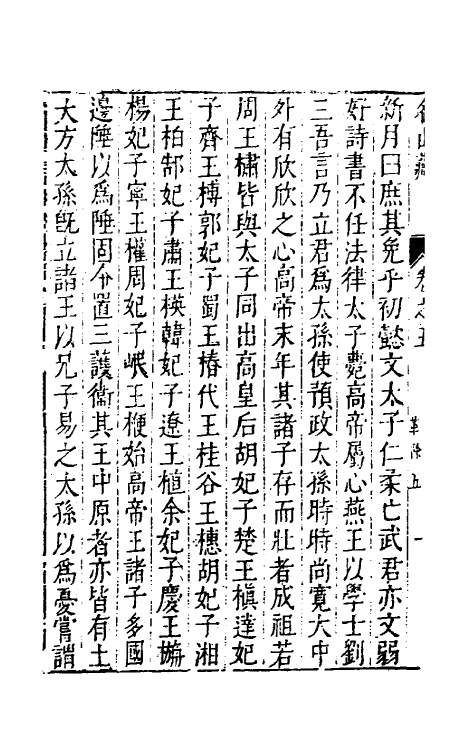 名山藏 卷之五
新月曰庶其免乎初懿文太子仁柔亡武君亦文弱
好詩書不任法律太子薨高帝屬心燕王以學士劉
三吾言乃立君為太孫使預政太孫時時尚寬大中
外有欣欣之心高帝末年其諸子存而壯者成祖若
周王橚皆與太子同出高皇后胡妃子楚王楨達妃
子齊王榑郭妃子蜀王椿代王桂谷王橞胡妃子湘
王柏郜妃子肅王楧韓妃子遼王植余妃子慶王㮵
楊妃子寧王權周妃子岷王楩始高帝王諸子多國
邊陲以為陲固分置三護衛其王中原者亦皆有土
大方太孫旣立諸王以兄子易之太孫以為憂嘗謂